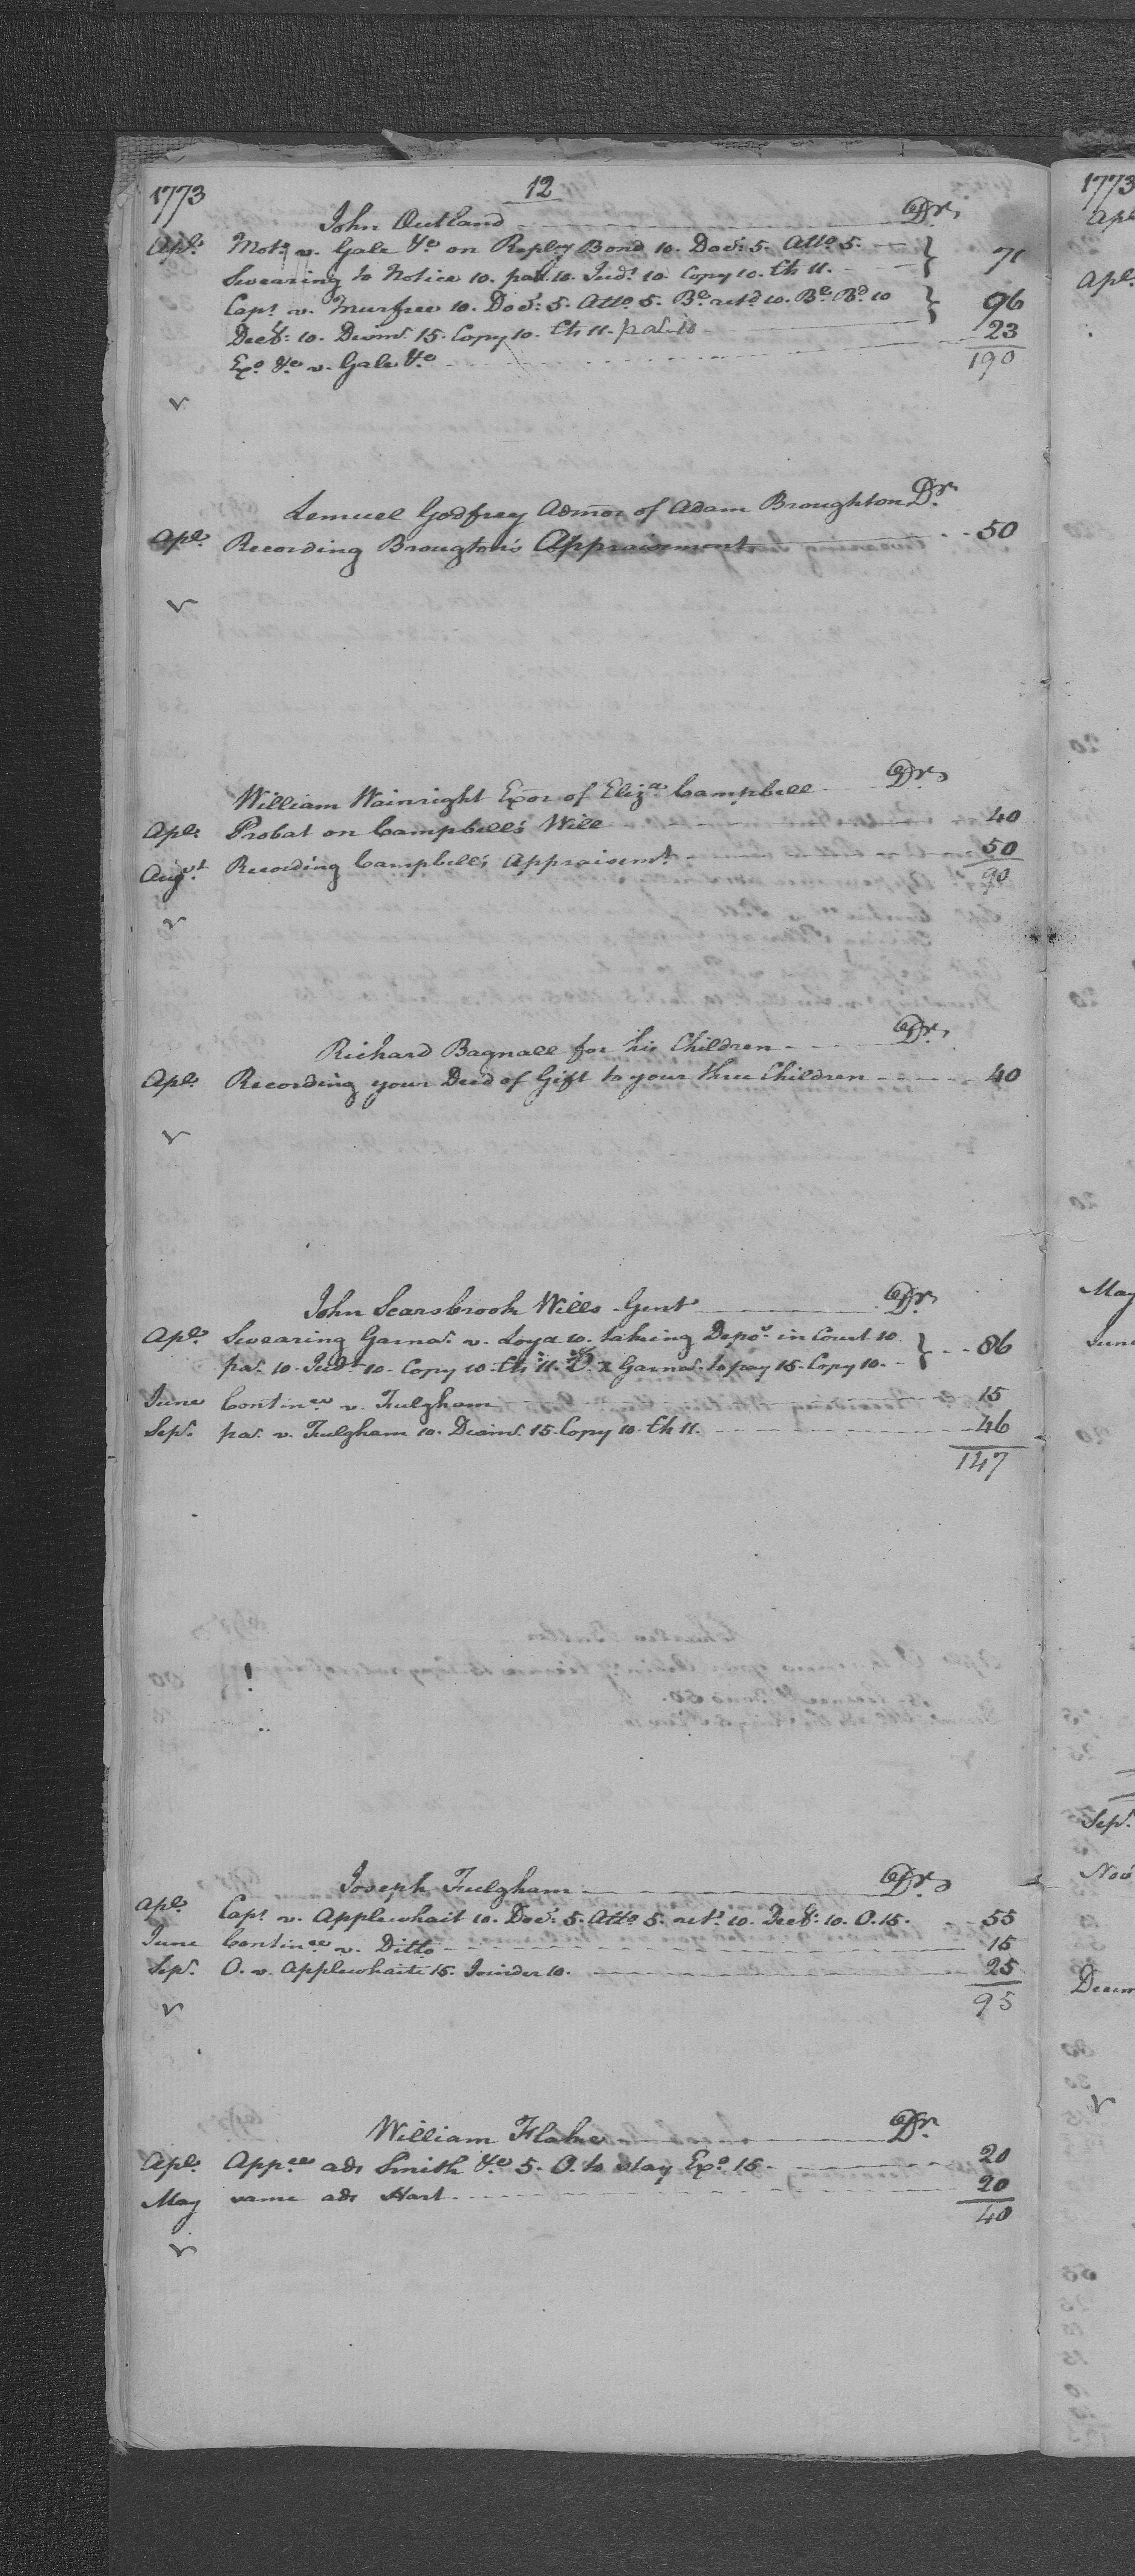 12
1773
John Outland Dr.
Apl. Moto. v. Gale &c on Replvy Bond 10. Doc. 5. Atto 5. } 71
Swearing to Notice 10. pa. 10. Jud.t 10. Copy 10. Th 11.
Cap.s v. Murfree 10. Doc.t 5. Atto 5. B.l ret.d 10. B.l B.d 10 } 96
Dect. 10. Dism.n 15. Copy 10. Th 11. pa. 10
Exo. &c v. Gale &c 23
190
Lemuel Godfrey Admor of Adam Broughton Dr.
Apl. Recording Brougton's Appraisement 50
William Wainright Exor of Eliz.a Campbell Dr.
Apl. Probat on Campbell's Will 40
Aug.st Recording Campbell's Appraisem.t 50
90
Richard Bagnall for his Children Dr.
Apl. Recording your Deed of Gift to your three Children 40
John Scarsbrook Wills Gent Dr.
Apl. Swearing Garna. v. Loyd 10. taking Depo.s in Court 10 } 86
pa. 10. Jud.t 10. Copy 10. Th 11. O. v Garna. to pay 15. Copy 10.
June Contin.ce v. Fulgham 15
Sep. pa. v. Fulgham 10. Dism. 15. Copy 10. Th 11. 46
147
Joseph Fulgham Dr.
Apl. Cap.s v. Applewhait 10. Doc.t 5. Atto 5. ret. 10. Dect. 10. O. 15. 55
June Contin.ce v. Ditto 15
Sep. O. v. Applewhaite 15. Joinder 10. 25
95
William Flake Dr.
Apl. App.ce ads Smith &c 5. O. to stay Exo. 15. 20
May same ads Hart. 20
40
1773
Apl
Apl.
May
June
Sep.
Nov
Decem